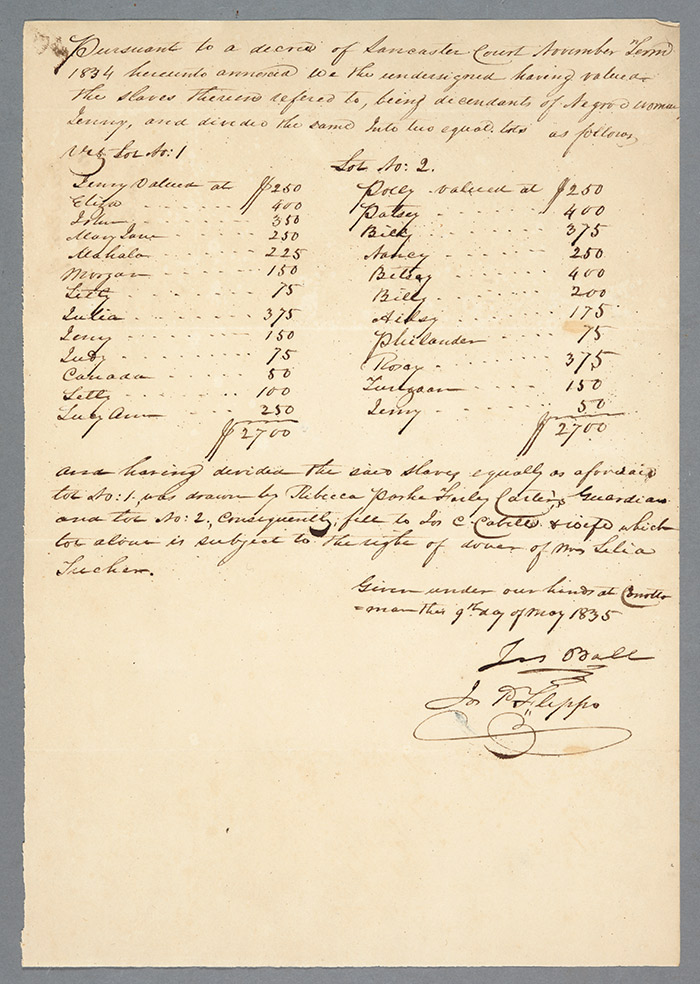 Pursuant to a decree of Lancaster Court November Term
1834 hereunto annexed we the undersigned having valued
the slaves therein refered to, being decendants of Negroe woman
Jenny, and divided the same Into two equal lots as follows,
Viz Lot No: 1
Jenny Valued at $250
Eliza 400
John 350
Mary Jane 250
Mahala 225
Morgan 150
Letty 75
Julia 375
Jenny 150
Judy 75
Canada 50
Letty 100
Lucy Ann 250
$2700
Lot No: 2.
Polly valued at $250
Patsey 400
Billy 375
Nancy 250
Betsey 400
Billy 200
Ailsy 175
Philander 75
Rosey 375
150
Jenny 50
$2700
and having divided the said slaves equally as aforesaid
Lot No: 1, was drawn by Rebecca Parke Farley Carter's Guardian
and Lot No: 2, Consequently, fell to Jos C Cabell & wife which
lot alone is subject to the right of dower of Mrs Lelia
Tucker.
Given under our hands at Corotto
=man this 9th day of May 1835
Jas Ball
Jos P Flippo